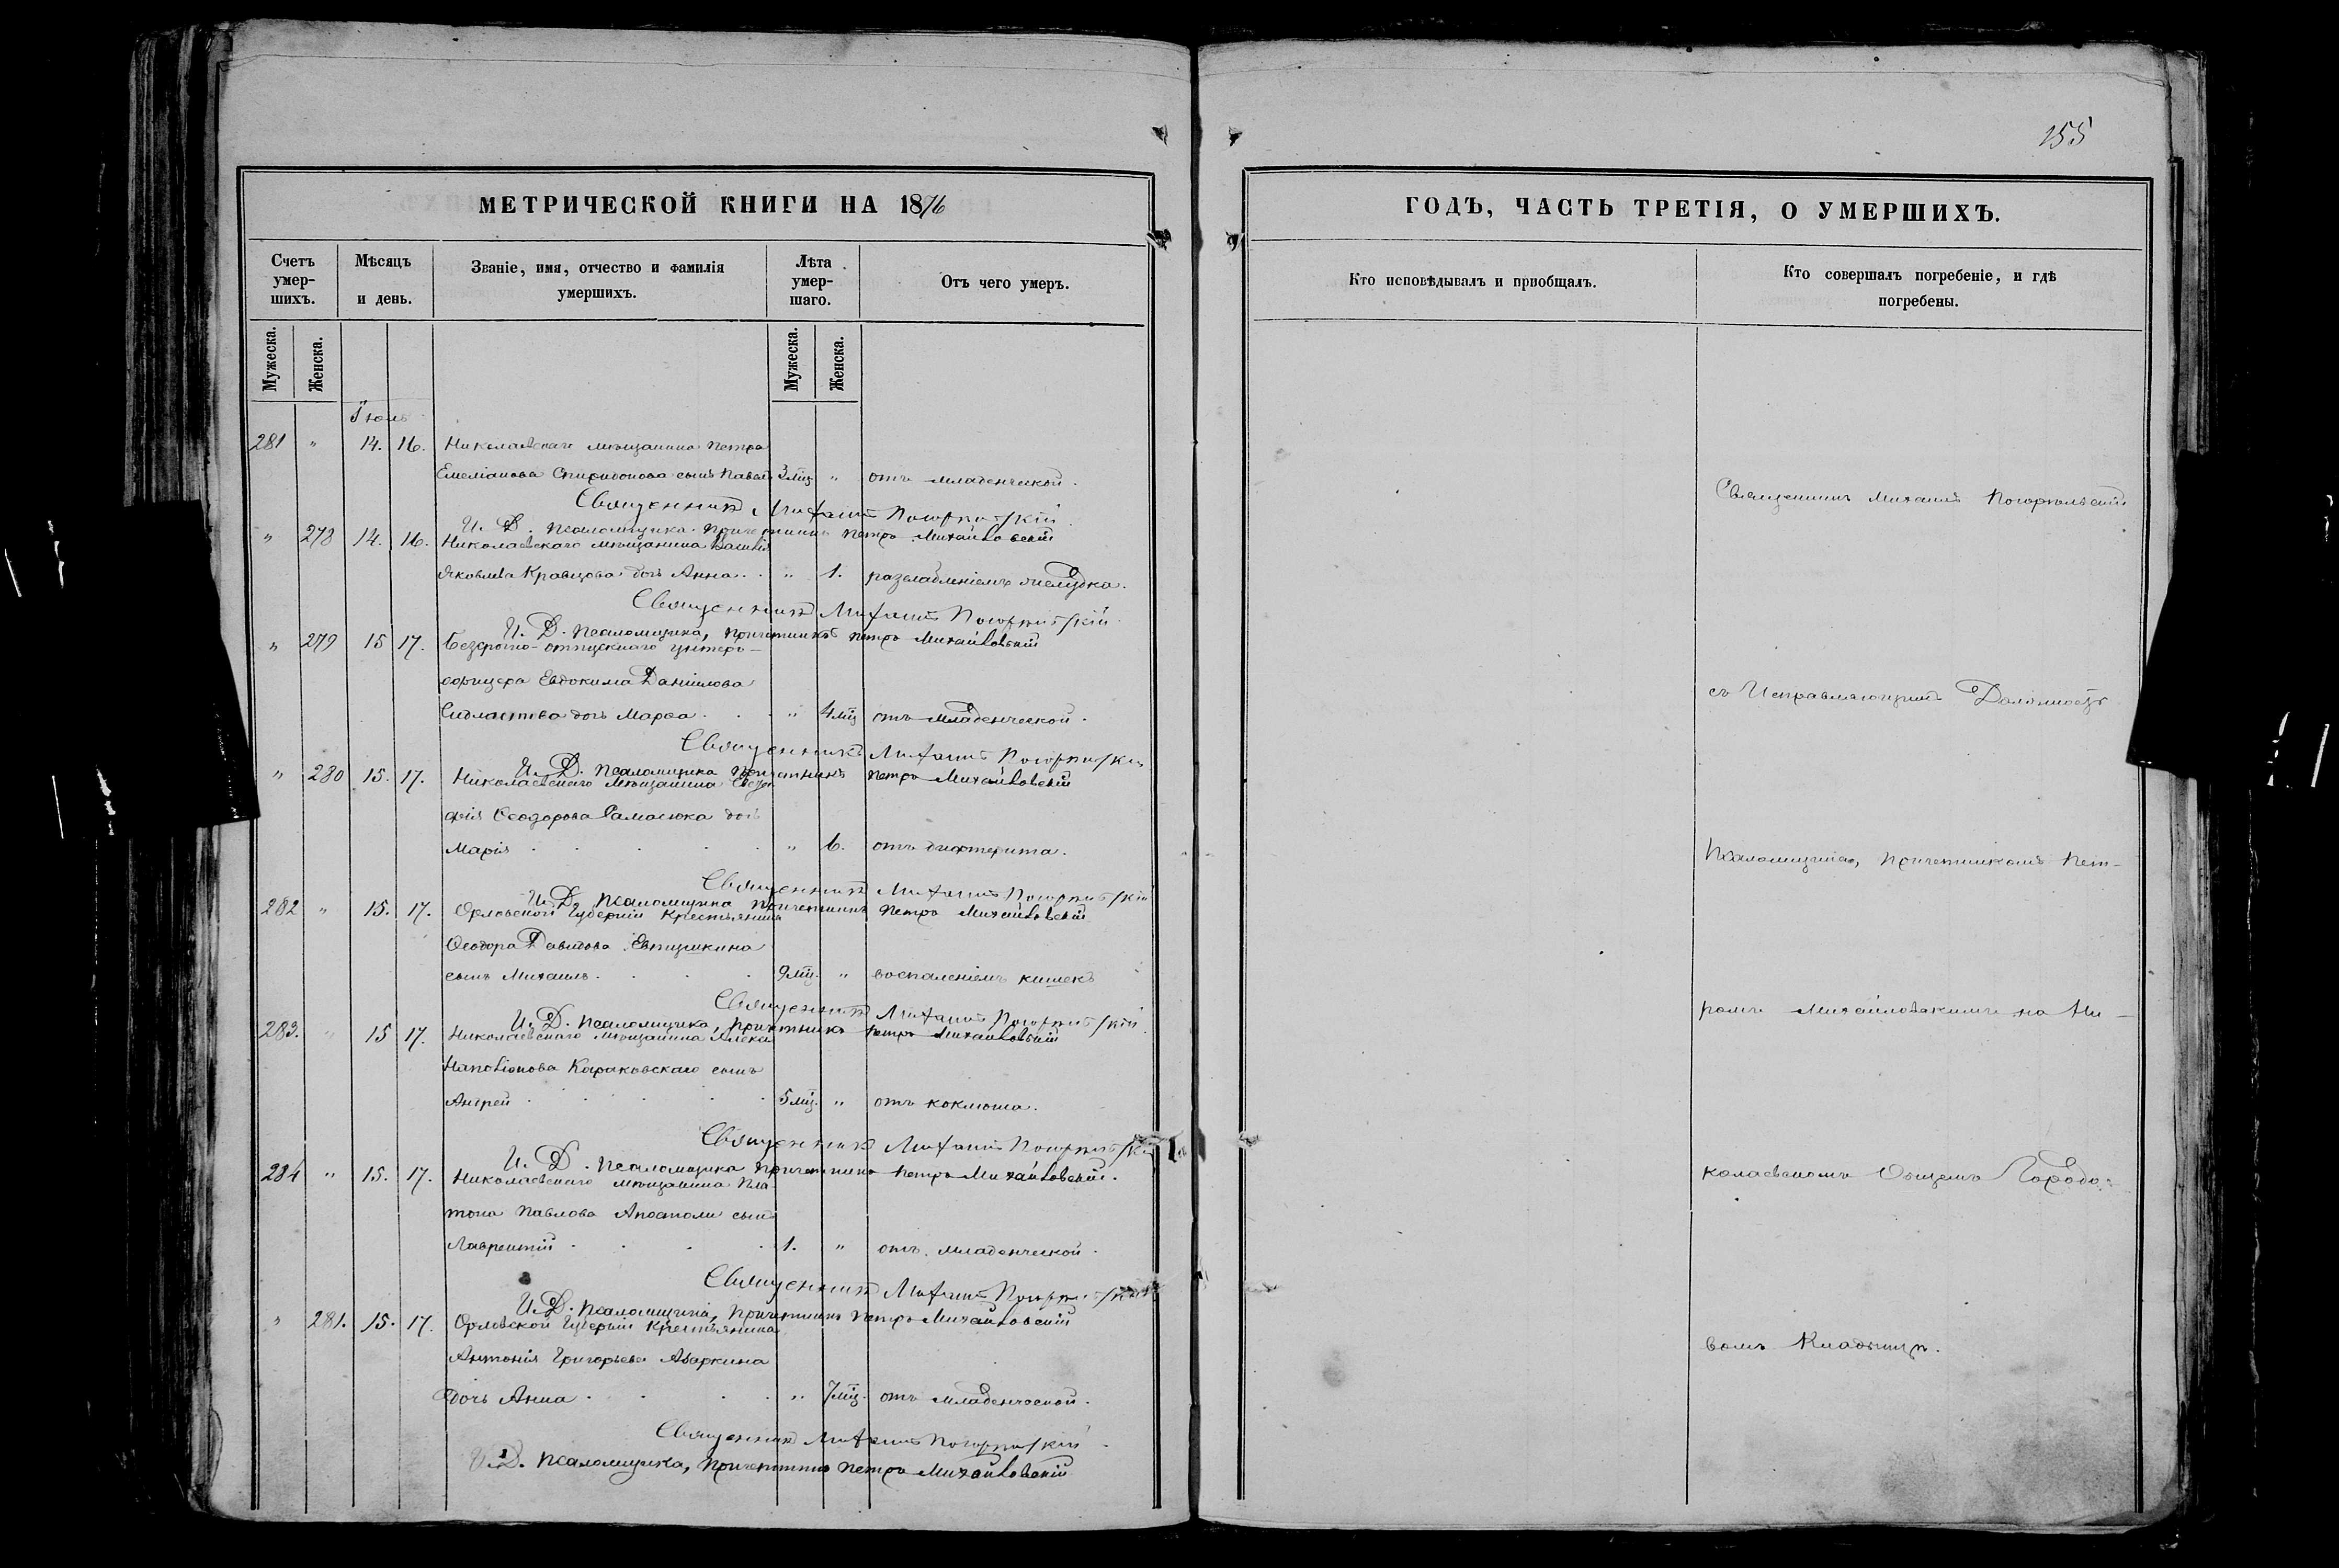 155
МЕТРИЧЕСКОЙ КНИГИ НА 1876
ГОДЪ, ЧАСТЬ ТРЕТІЯ, О УМЕРШИХЪ.
Счетъ умер-
шихъ.
Мѣсяцъ
и день.
Званіе, имя, отчество и фамилія
умершихъ.
Лѣта
умер-
шаго.
Отъ чего умеръ.
Кто исповѣдывалъ и пріобщалъ.
Кто совершалъ погребеніе, и гдѣ
погребены.
Мужеска. Женска.
Мужеска. Женска.
Іюль
281 " 14. 16. Николаевскаго мѣщанина Петра
Емеліанова Спиридонова сынъ Павелъ 3 мц. " отъ младенческой.
Священникъ Михаилъ Погорѣльскій
И. Д. Псаломщика Причетникъ Петръ Михайловскій
" 278 14. 16. Николаевскаго мѣщанина Василія
Яковлева Кравцова дочь Анна . . " 1. разслабленіемъ желудка.
Священникъ Михаилъ Погорѣльскій
И. Д. Псаломщика, Причетникъ Петръ Михайловскій
" 279 15 17. Безсрочно-отпускнаго унтеръ-
офицера Евдокима Даніилова
дочь Марѳа . . " 4 мц отъ младенческой.
Священникъ Михаилъ Погорѣльскій
И. Д. Псаломщика Причетникъ Петръ Михайловскій
" 280 15. 17. Николаевскаго Мѣщанина
Ѳеодорова дочь
Марія . . . . . " 6. отъ дифтерита.
Священникъ Михаилъ Погорѣльскій
И. Д. Псаломщика Причетникъ Петръ Михайловскій
282 " 15. 17. Орловской Губерніи Крестьянина
Ѳеодора Давидова
сынъ Михаилъ . . . . 9 мц. " воспаленіемъ кишекъ
Священникъ Михаилъ Погорѣльскій
И. Д. Псаломщика, Причетникъ Петръ Михайловскій
283. " 15 17. Николаевскаго мѣщанина
Караковскаго сынъ
Андрей . . . . . 5 мц. " отъ коклюша.
Священникъ Михаилъ Погорѣльскій
И. Д. Псаломщика Причетникъ Петръ Михайловскій.
284 " 15. 17. Николаевскаго мѣщанина Пла-
тона Павлова Апостоли сынъ
Лаврентій . . . . 1. " отъ младенческой.
Священникъ Михаилъ Погорѣльскій
И. Д. Псаломщика, Причетникъ Петръ Михайловскій
" 281. 15. 17. Орловской Губерніи Крестьянина
Антонія Григорьева Аваркина
дочь Анна . . . . " 7 мц. отъ младенческой.
Священникъ Михаилъ Погорѣльскій
И. Д. Псаломщика, Причетникъ Петръ Михайловскій
Священникъ Михаилъ Погорѣльскій
съ Исправляющимъ Должность
Псаломщика, Причетникомъ Пет-
ромъ Михайловскимъ на Ни-
колаевскомъ Общемъ Городо-
вомъ Кладбищѣ.